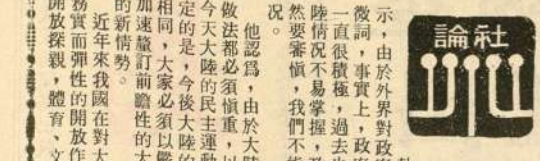 社論
示，由於外界對政
微詞，事實上，政府
一直很積極，過去
陸情況不易掌握，
然要審慎，我們不
況。
他認爲，由於大陸
做法都必須慎重，以
今天大陸的民主運動
定的是，今後大陸的
相同，大家必須以
加速釐訂前瞻性的大
的新情勢。
近年來我國在對大
務實而彈性的開放作
開放探親，體育、文